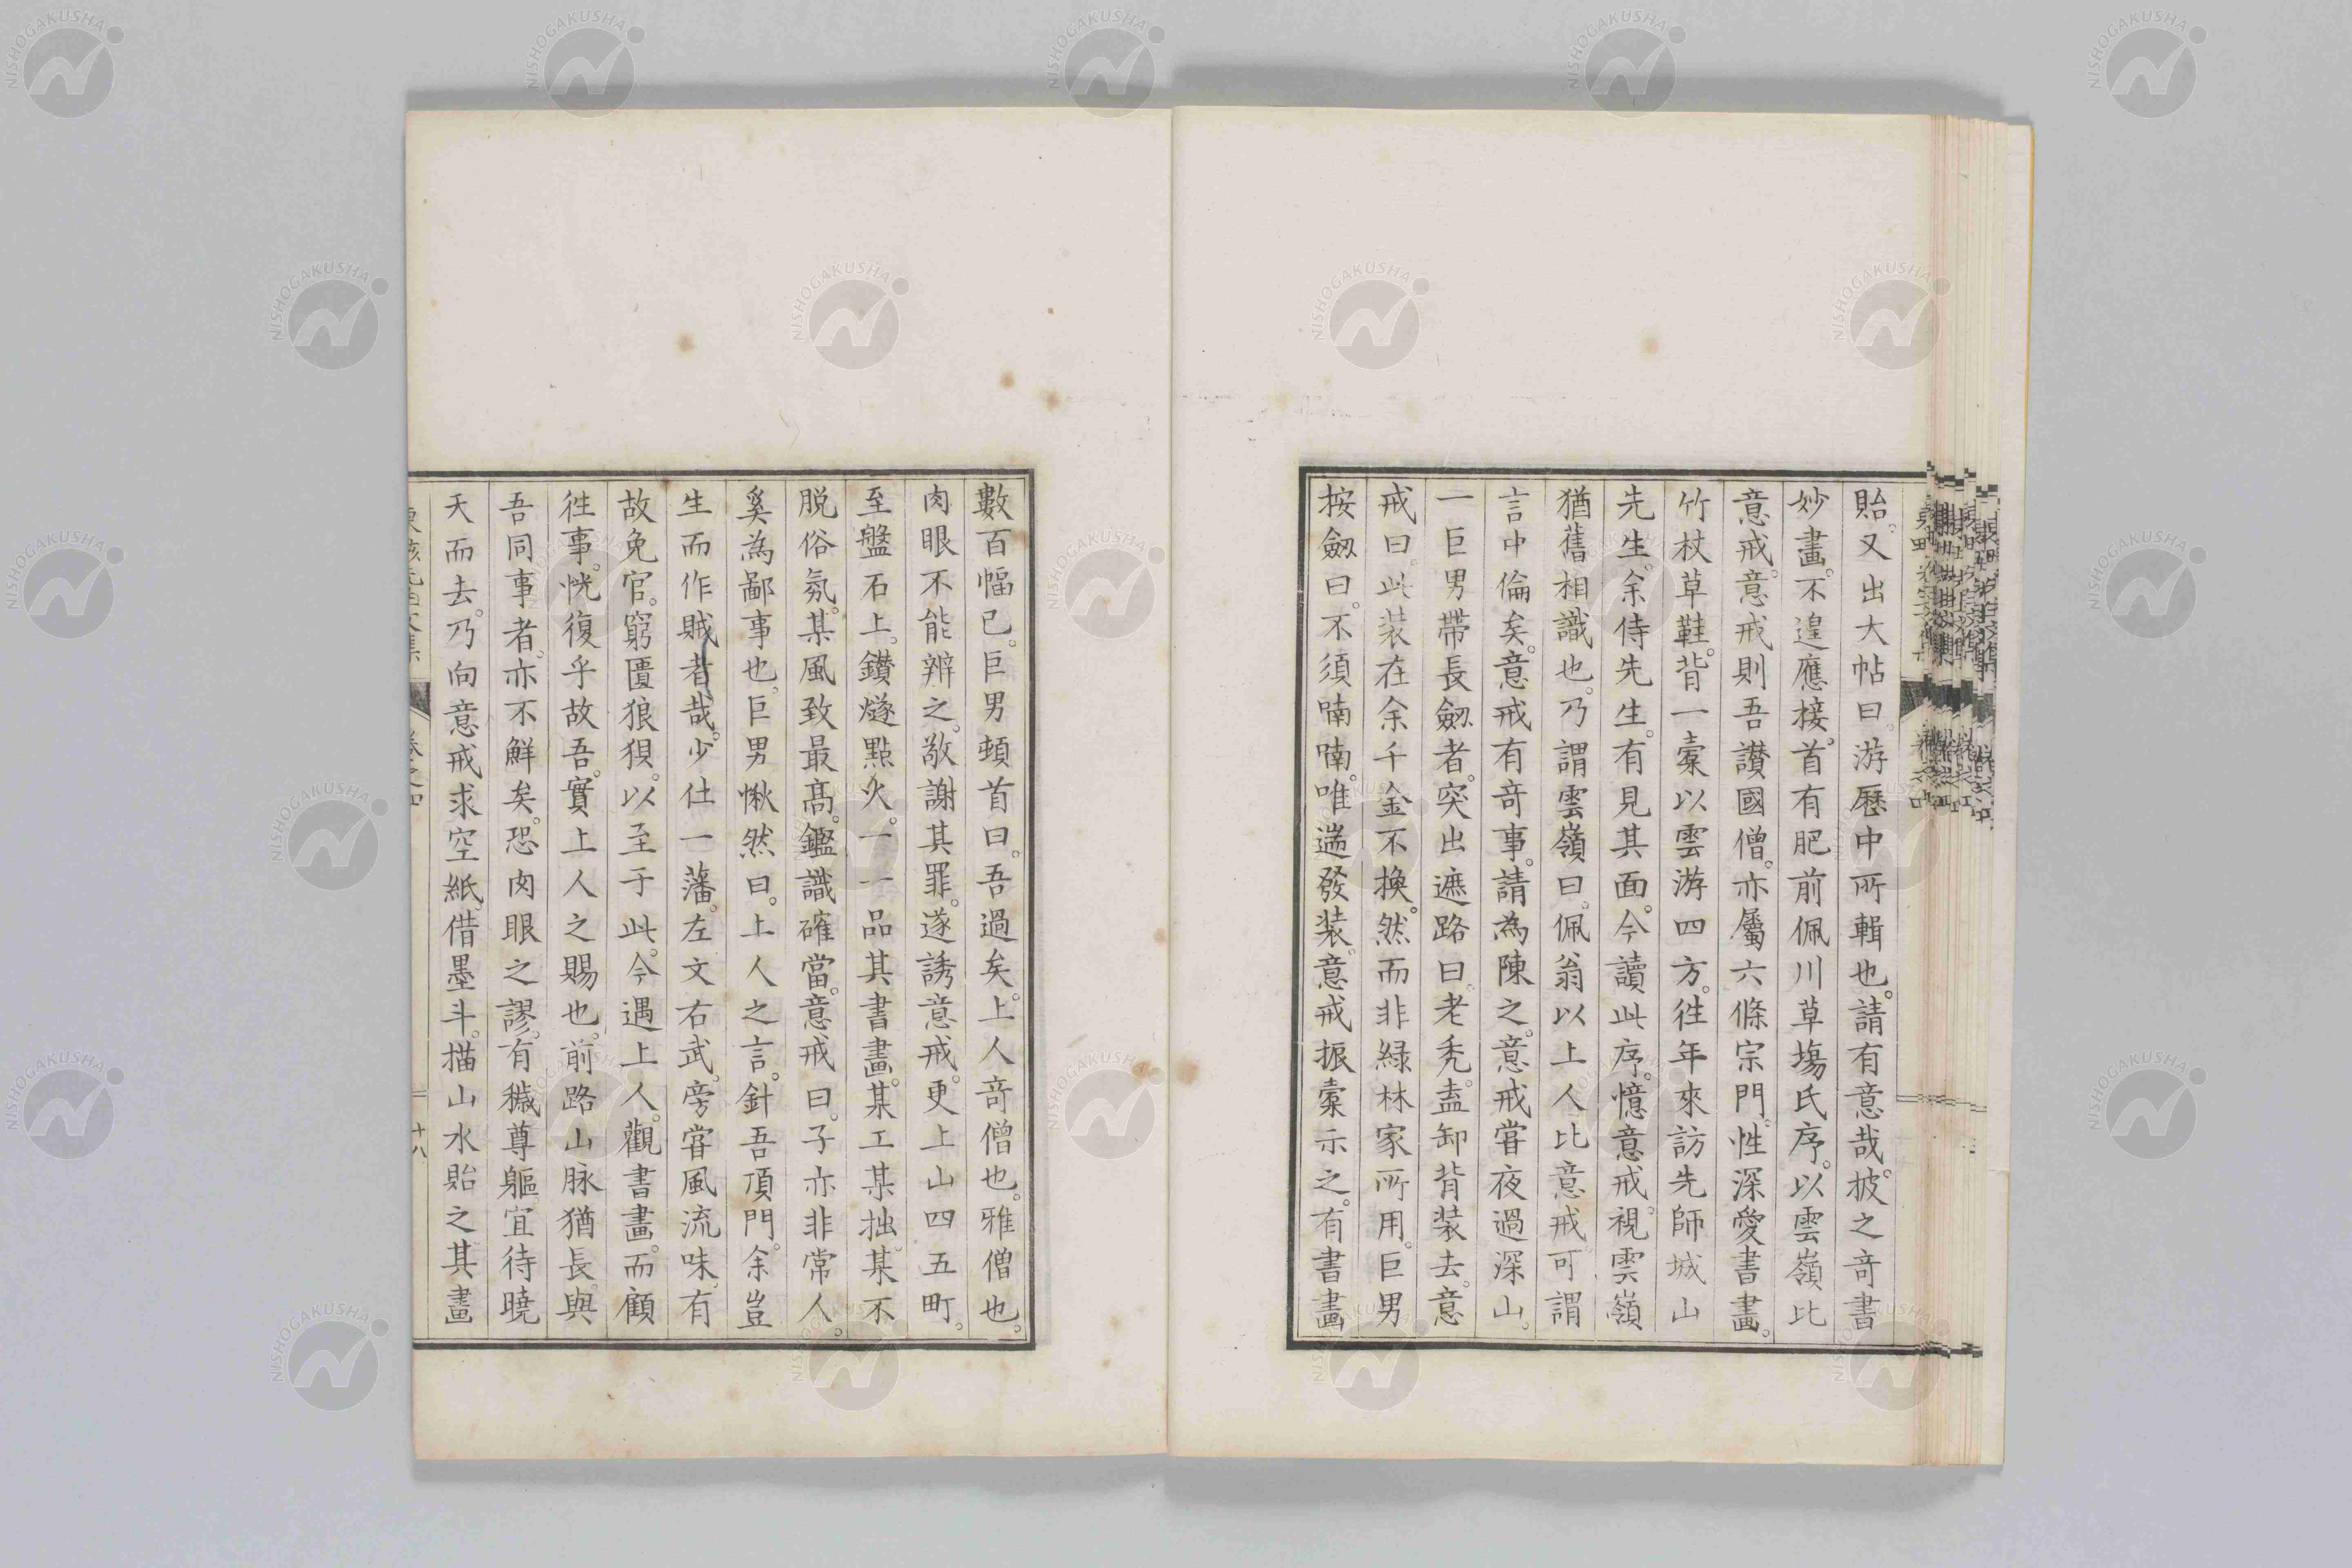 貽。又出大帖曰。游歷中所輯也。請有意哉。披之奇書
妙畫。不遑應接。首有肥前佩川草塲氏序。以雲嶺比
意戒。意戒則吾讃國僧。亦屬六條宗門。性深愛書畫。
竹杖草鞋。背一橐以雲游四方。徃年來訪先師城山
先生。余侍先生。有見其面。今讀此序。憶意戒。視雲嶺
猶舊相識也。乃謂雲嶺曰。佩翁以上人比意戒可謂
言中倫矣。意戒有奇事。請為陳之。意戒甞夜過深山。
一巨男帶長劒者。突出遮路曰。老禿。盍卸背装去。意
戒曰。此装在余千金不換。然而非緑林家所用。巨男
按劒曰。不須喃喃。唯遄發装。意戒振橐示之。有書畫
數百幅已。巨男頓首曰。吾過矣。上人奇僧也。雅僧也。
肉眼不能辨之。敢謝其罪。遂誘意戒。更上山四五町。
至盤石上。鑽燧點火。一一品其書畫。某工某拙。某不
脱俗氛。某風致最髙。鑑識確當。意戒曰。子亦非常人。
奚為鄙事也。巨男愀然曰。上人之言。針吾頂門。余豈
生而作賊者哉。少仕一藩。左文右武。旁甞風流味。有
故免官。窮匱狼狽。以至于此。今遇上人。觀書畫。而顧
徃事。恍復乎故吾。實上人之賜也。前路山脉猶長。與
吾同事者。亦不鮮矣。恐肉眼之謬。有穢尊軀。宜待曉
天而去。乃向意戒求空紙。借墨斗。描山水貽之。其畫
卷之四
十八
NISHOGAKUSHA